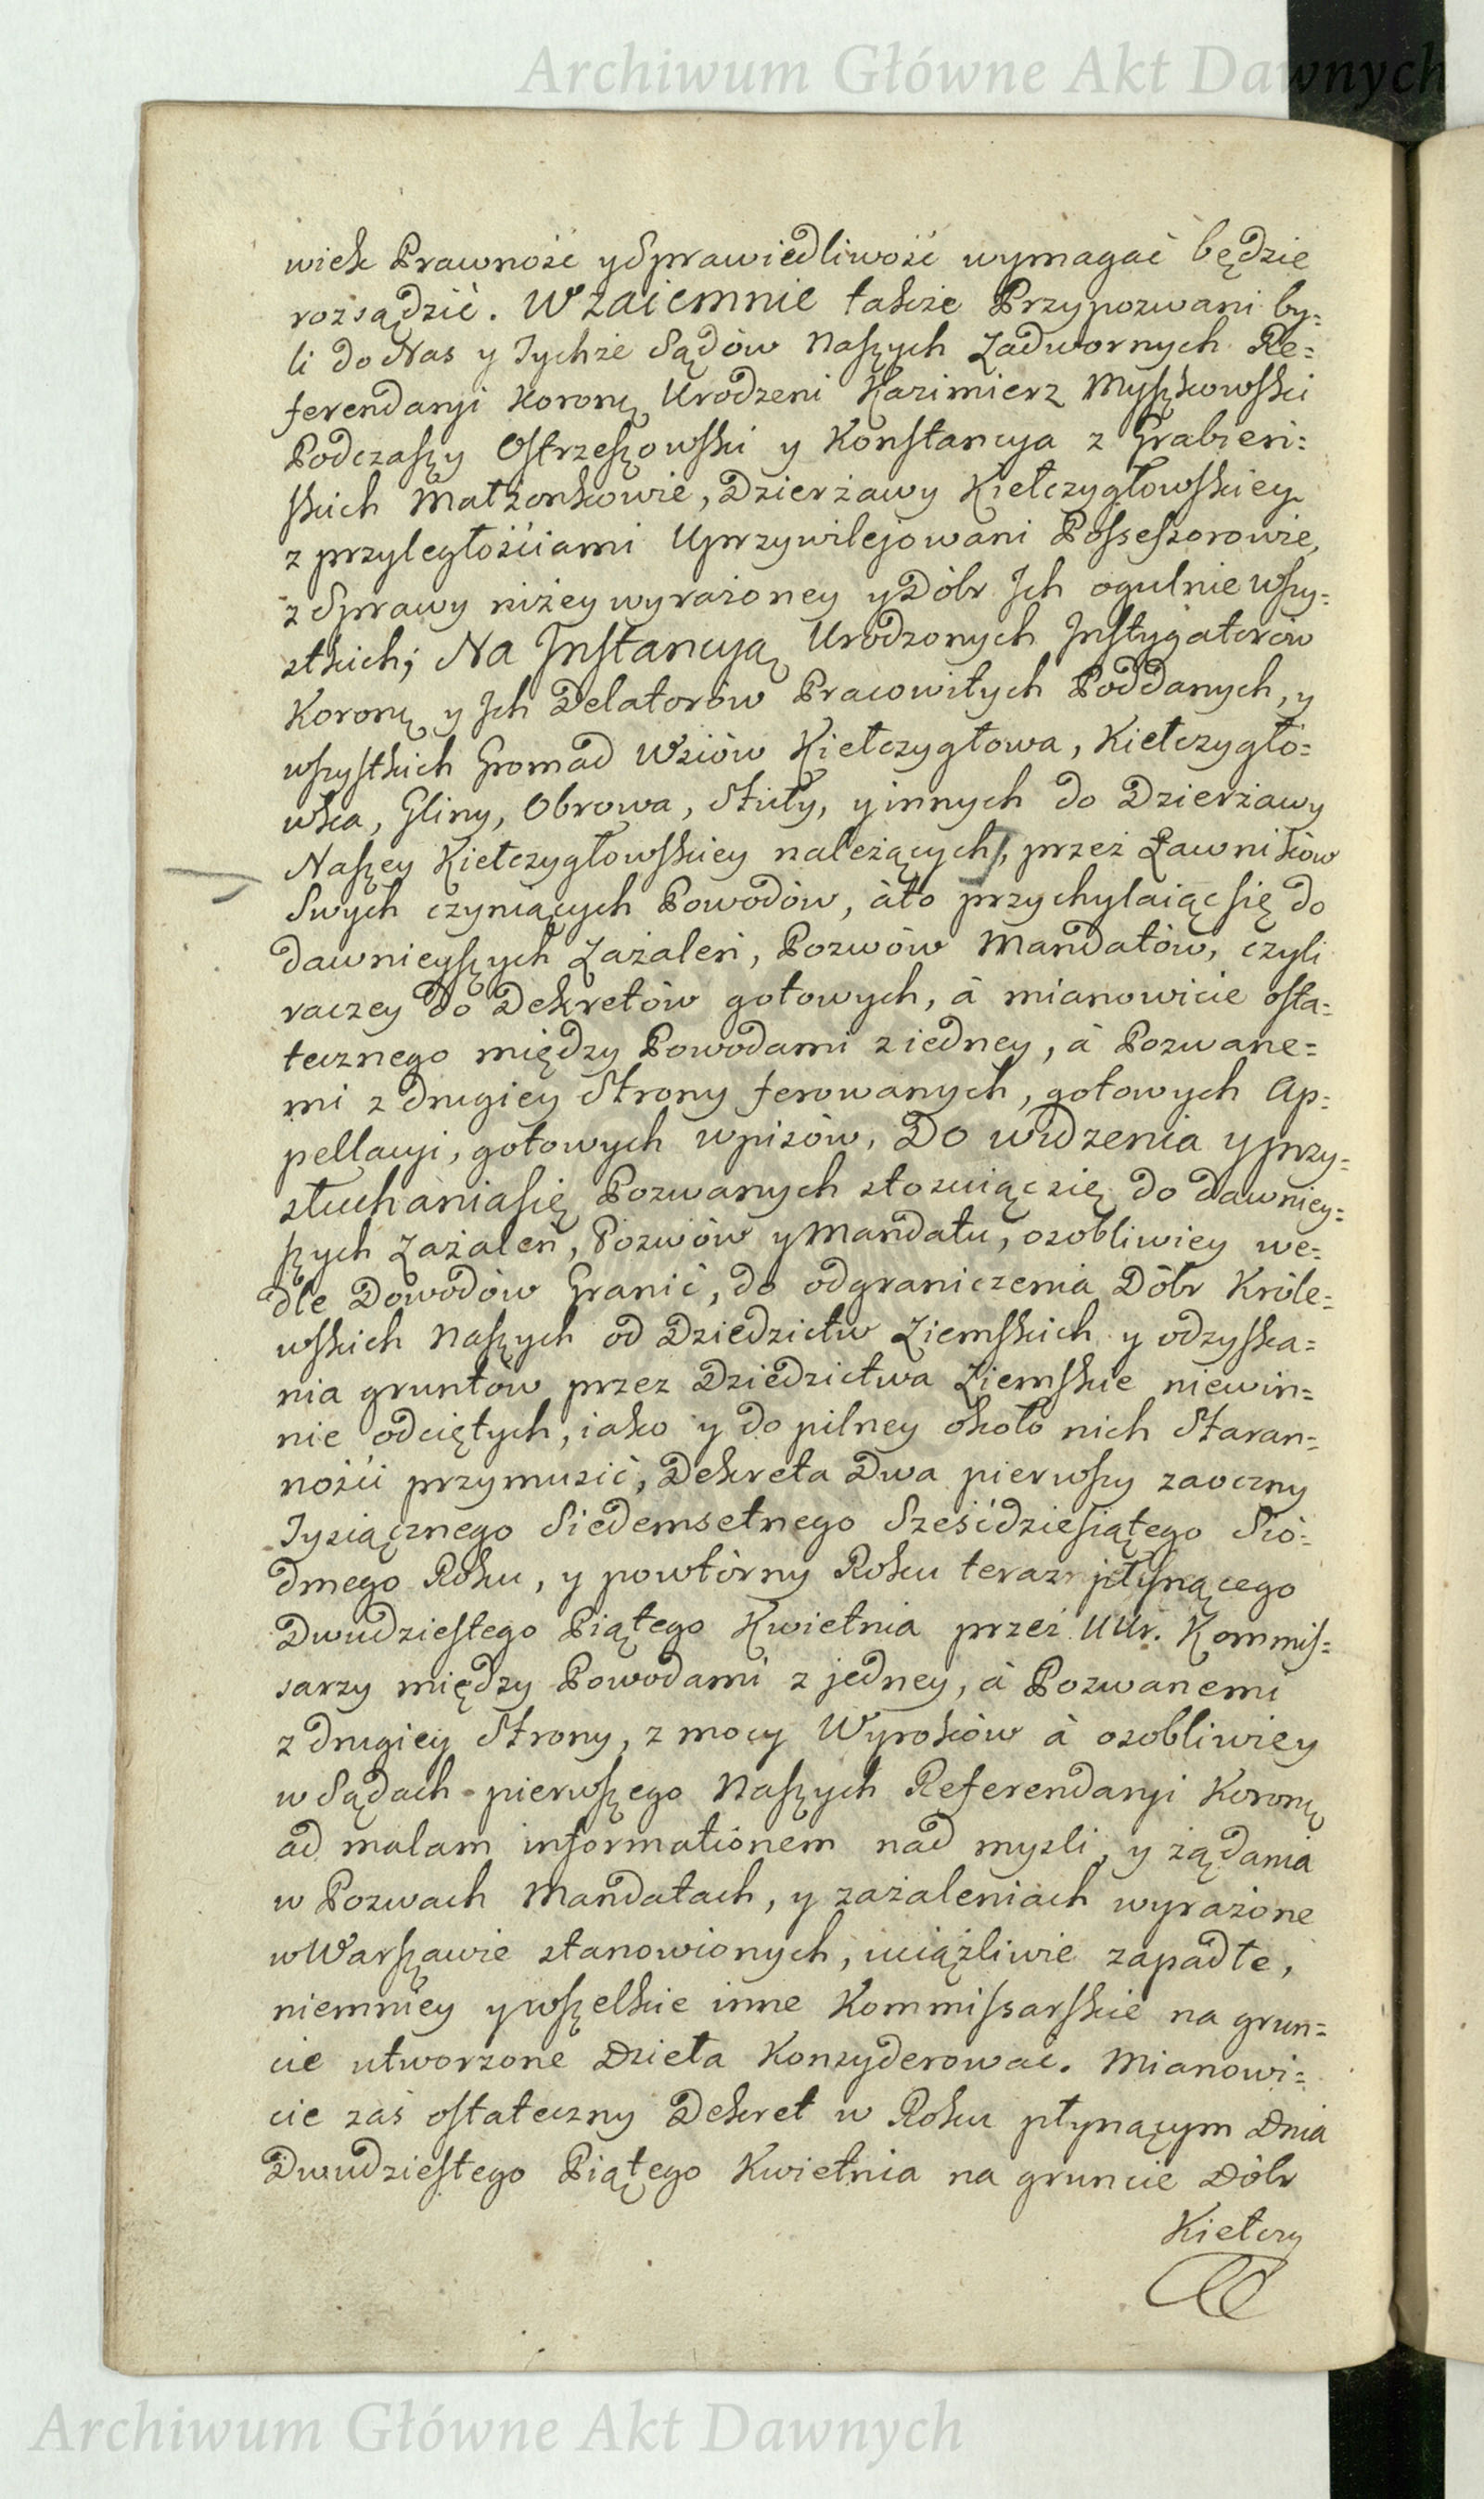 Archiwum Główne Akt Dawnych
wiek Prawność y Sprawiedliwość wymagać będzie
rozsądzić. Wzaiemnie także Przypozwani by=
li do Nas y Tychże Sądów Naszych Zadwornych Re=
ferendaryi Koronę Urodzeni Kazimierz Myszkowski
Podczaszy Ostrzeszowski y Konstancya z Grabień=
skich Małżonkowie, Dzierżawy Kiełczygłowskiey
z przyległościami Uprzywilejowani Possessorowie,
z Sprawy niżey wyrażoney y Dóbr Ich ogulnie wszy=
stkich; Na Instancyą Urodzonych Instygatorów
Koronę y Ich Delatorów Pracowitych Poddanych, y
wszystkich Gromad Wsiów Kiełczygłowa, Kiełczygło=
wka, Gliny, Obrowa, Stuły, y innych do Dzierżawy
Naszey Kiełczygłowskiey należących, przez Ławników
Swych czyniących Powodów, à to przychylaiąc się do
dawnieyszych Zażaleń, Pozwów Mandatów, czyli
raczey do Dekretów gotowych, à mianowicie osta=
tecznego między Powodami z iedney, à Pozwane=
mi z drugiey Strony ferowanych, gotowych Ap=
pellacyi, gotowych wpisów, Do widzenia y przy=
słuchania się Pozwanych stosuiąc się do dawniey=
szych Zażaleń, Pozwów y Mandatu, osobliwiey we=
dle Dowodów Granic, do odgraniczenia Dóbr Króle=
wskich Naszych od Dziedzictw Ziemskich y odzyska=
nia gruntów przez Dziedzictwa Ziemskie niewin=
nie odciętych, iako y do pilney około nich Staran=
ności przymusić, Dekreta Dwa pierwszy zaoczny
Tysiącznego Siedemsetnego Sześćdziesiątego Sió=
dmego Roku, y powtórny Roku teraz płynącego
Dwudziestego Piątego Kwietnia przez UUr. Kommis=
sarzy między Powodami z jedney, à Pozwanemi
z drugiey Strony, z mocy Wyroków à osobliwiey
w Sądach pierwszego Naszych Referendaryi Koronę
ad malam informationem nad myśli, y żądania
w Pozwach Mandatach, y zażaleniach wyrażone
w Warszawie stanowionych, uciążliwie zapadłe,
niemniey y wszelkie inne Kommissarskie na grun=
cie utworzone Dzieła Konsyderować. Mianowi=
cie zaś ostateczny Dekret w Roku płynącym Dnia
Dwudziestego Piątego Kwietnia na gruncie Dóbr
Kiełczy
Archiwum Główne Akt Dawnych